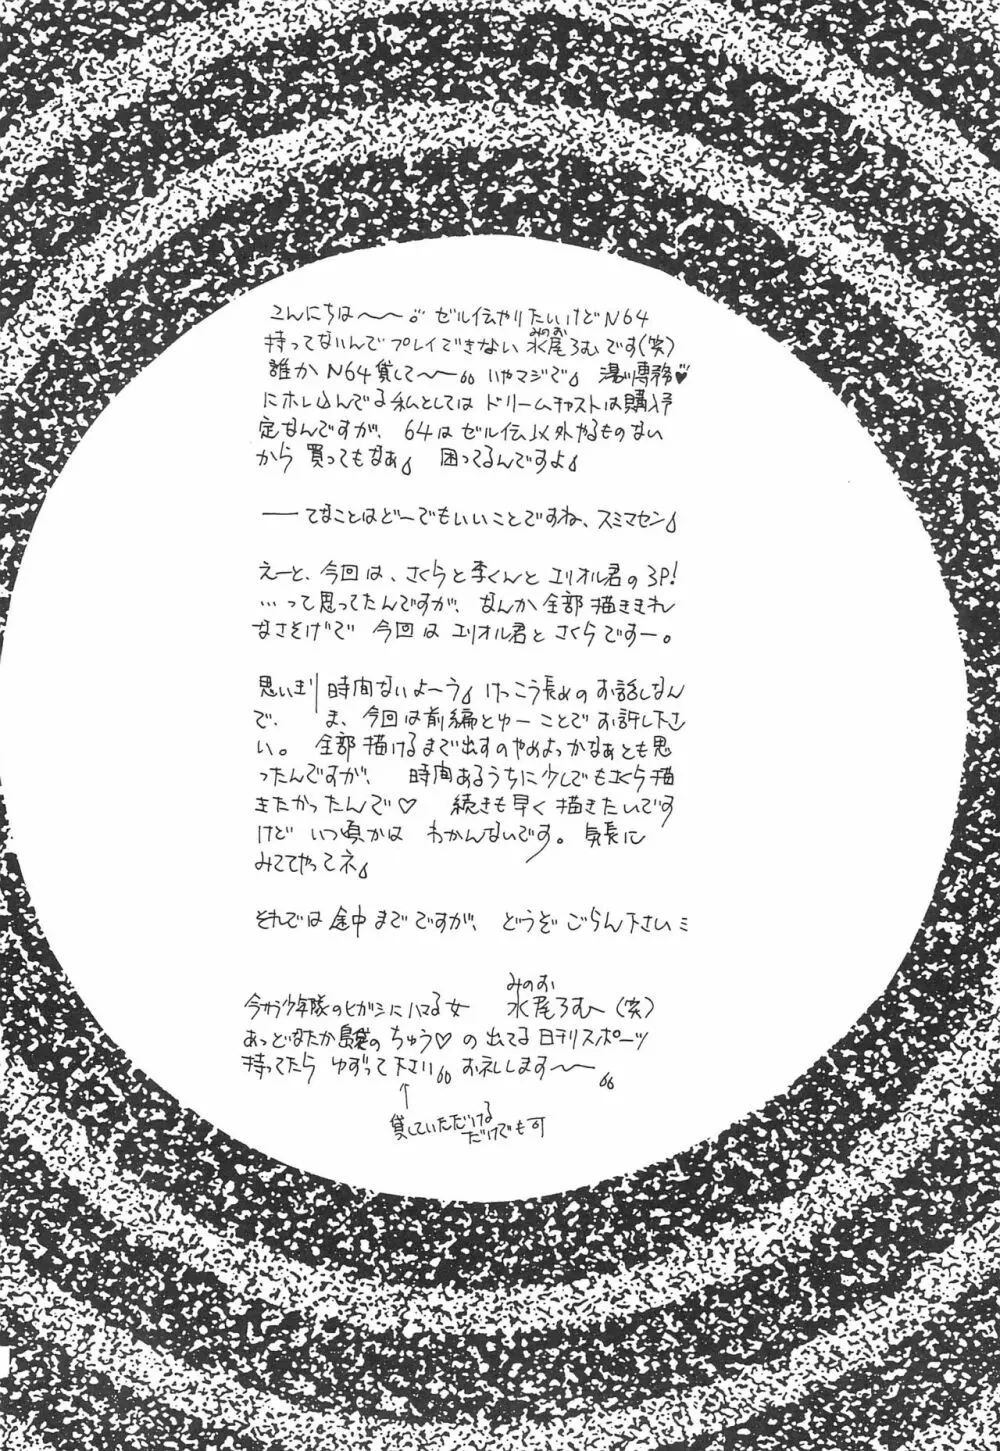 こんにちは〜〜。ゼル伝やりたいけどN64
持ってないんでプレイできない水尾ろむです(笑)
みのお
誰かN64貸して〜〜。いやマジで 湯川専務♥
にホレ込んでる私としてはドリームチャストは購入予
定なんですが、64はゼル伝以外やるものない
から買ってもなぁ 困ってるんですよ
──てなことはどーでもいいことですね、スミマセン
えーと、今回は、さくらと李くんとエリオル君の3P!
…って思ってたんですが、なんか全部描ききれ
なさそげで今回はエリオル君とさくらですー。
思いきり時間ないよーう けっこう長めのお話しなん
で、ま、今回は前編とゆーことでお許し下さ
い。全部描けるまで出すのやめよっかなぁとも思
ったんですが、時間あるうちに少しでもさくら描
きたかったんで♡ 続きも早く描きたいです
けどいつ頃かはわかんないです。気長に
みててやってネ
それでは途中までですが、どうぞごらん下さい
みのお
今さら少年隊のヒガシにハマる女 水尾ろむ〜(笑)
あっどなたか島袋のちゅう♡の出てる日刊スポーツ
持ってたらゆずって下さい。お礼します〜〜。
↑
貸していただける
だけでも可